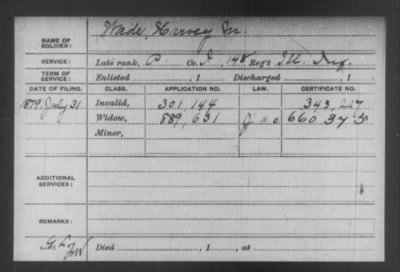 NAME OF SOLDIER: Wade, Harvey M.
SERVICE: Late rank, P. Co. I, 148 Reg't Ill. Inf.
TERM OF SERVICE: Enlisted , 1 Discharged , 1
DATE OF FILING. CLASS. APPLICATION NO. LAW. CERTIFICATE NO.
1879 July 31 Invalid, 301,144 343,217
Widow, 889,631 660375
Minor,
ADDITIONAL SERVICES:
REMARKS:
Died , 1 , at